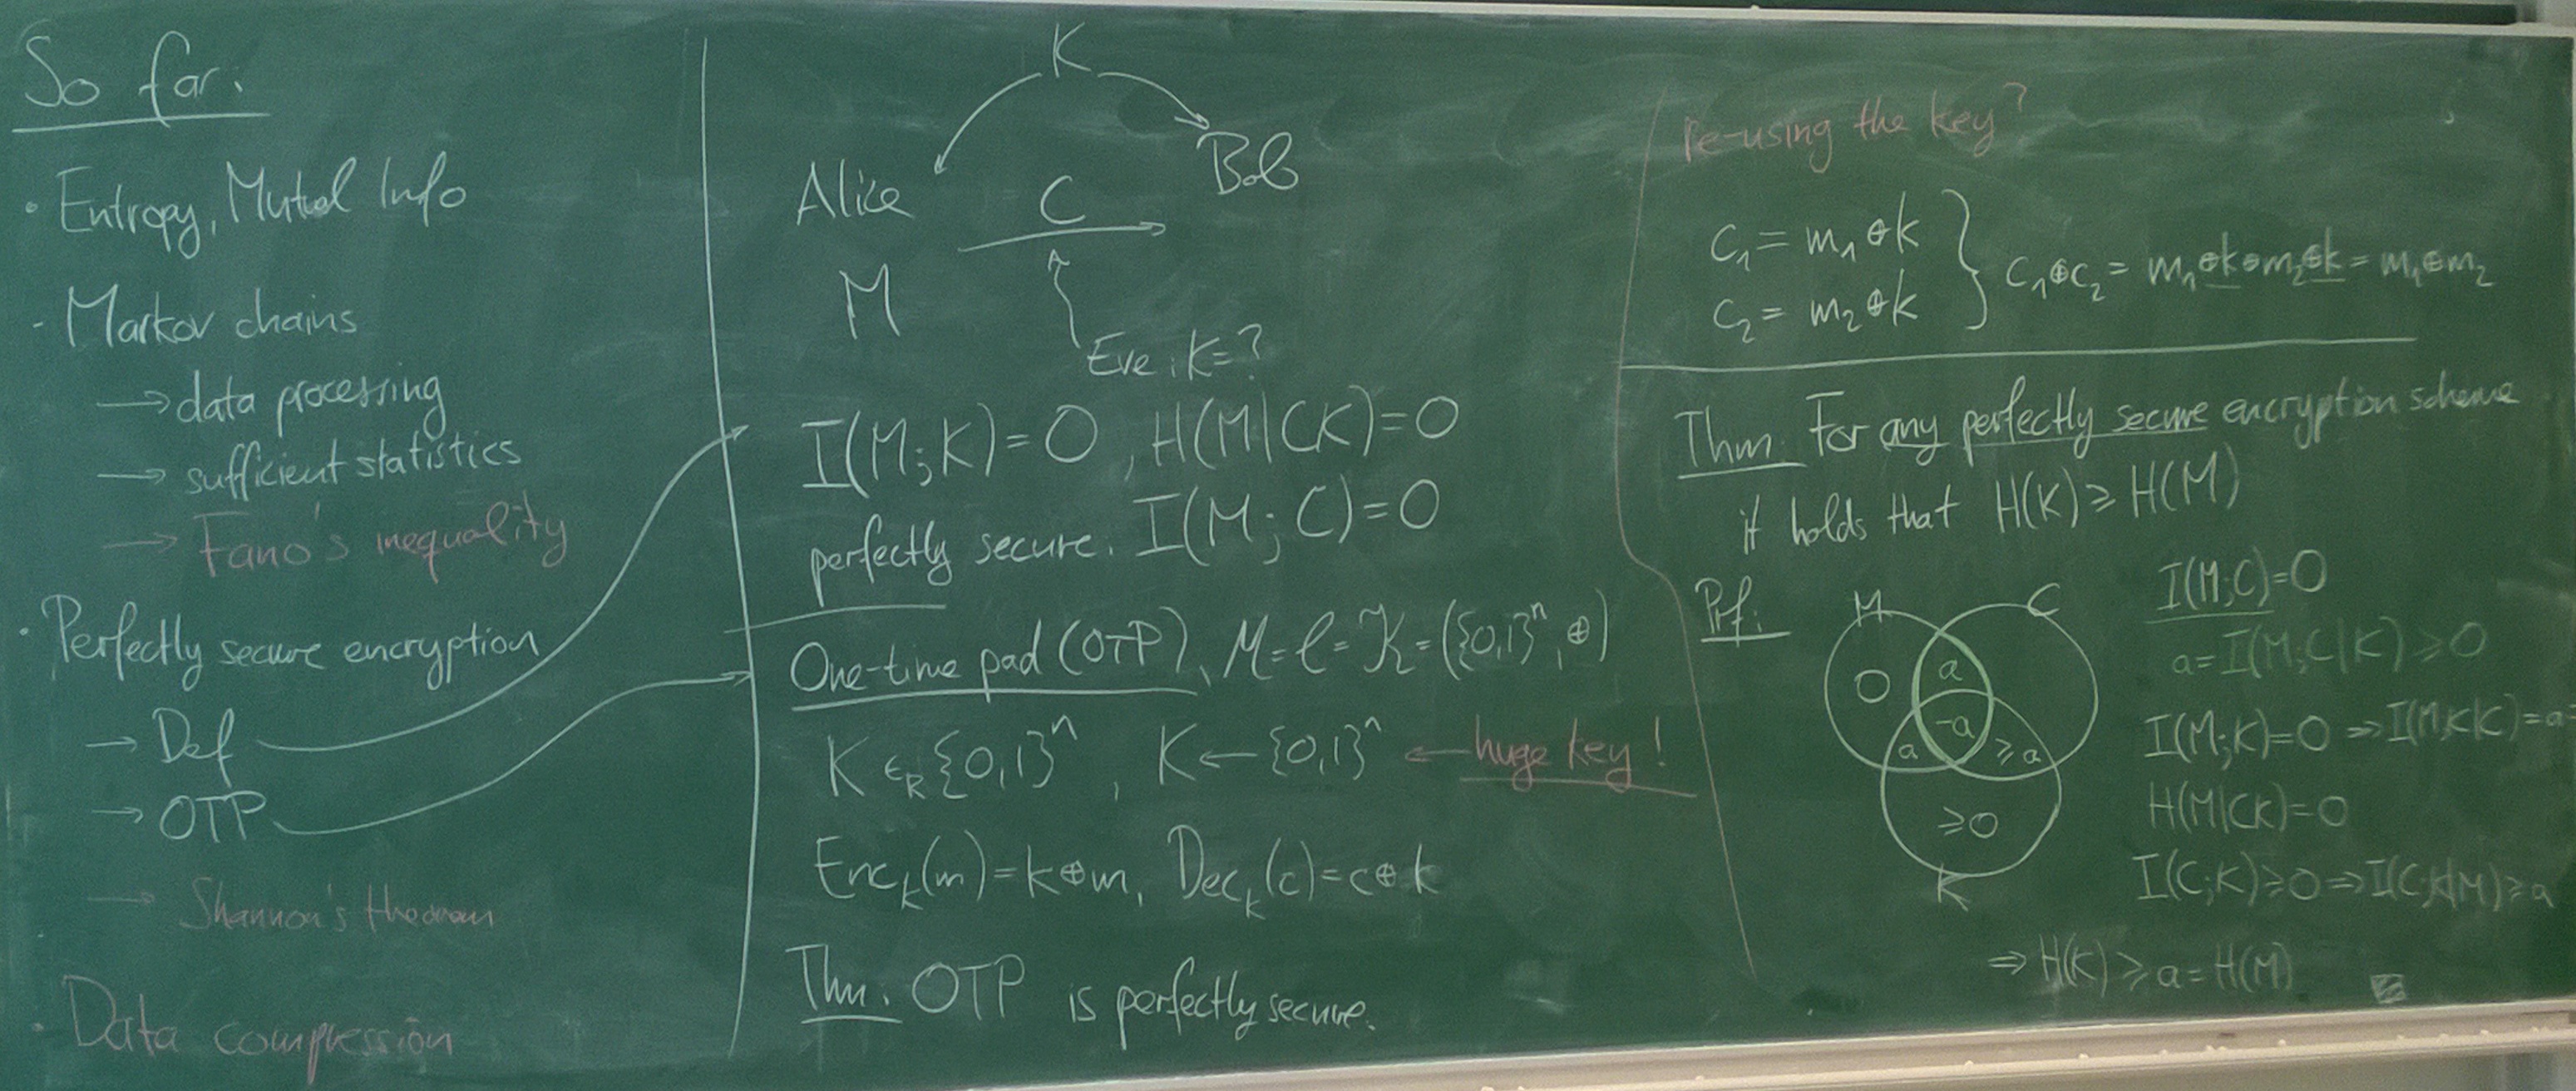 So far:
· Entropy, Mutual Info
- Markov chains
→ data processing
→ sufficient statistics
→ Fano's inequality
· Perfectly secure encryption
→ Def
→ OTP
→ Shannon's theorem
· Data compression
K
Alice
Bob
C
M
Eve: K=?
I(M;K)=0, H(M|CK)=0
perfectly secure: I(M;C)=0
One-time pad (OTP), M=C=K=({0,1}ⁿ,⊕)
K ∈_R {0,1}ⁿ, K ← {0,1}ⁿ ← huge key!
Enc_k(m)=k⊕m, Dec_k(c)=c⊕k
Thm: OTP is perfectly secure.
Re-using the key?
c₁ = m₁⊕k
c₂ = m₂⊕k
} c₁⊕c₂ = m₁⊕k⊕m₂⊕k = m₁⊕m₂
Thm: For any perfectly secure encryption scheme
it holds that H(K) ≥ H(M)
Prf:
M
C
0
a
-a
a
≥a
≥0
K
I(M;C)=0
a=I(M;C|K) ≥ 0
I(M;K)=0 ⇒ I(M;K|C)=a
H(M|CK)=0
I(C;K)≥0 ⇒ I(C;K|M)≥a
⇒ H(K) ≥ a = H(M)